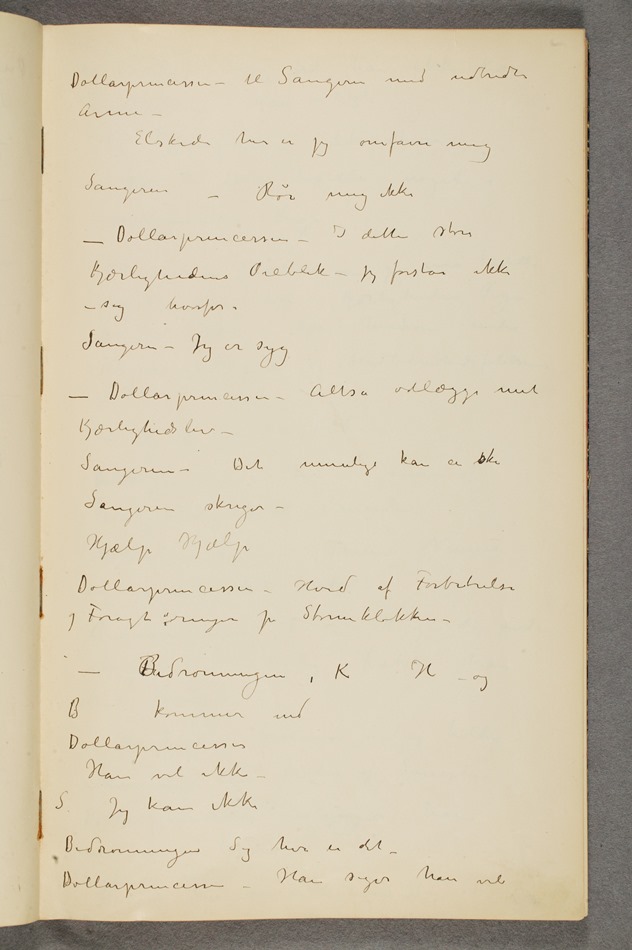 Dollarprincessen – til Sangeren med udbredte
Arme –
Elskede her er jeg omfavn mig
Sangeren – Rör mig ikke
– Dollarprincessen – I dette store
Kjærlighedens Öieblik – jeg forstår ikke
– sig hvorfor.
Sangeren – Jeg er syg
– Dollarprincessen – Altså ödlægge mit
Kjærlighedsliv –
Sangeren – Det umulige kan ei ske
Sangeren skriger –
Hjælp Hjælp
Dollarprincessen – Hvid af Forbitrelse
og Foragt ringer på Stormklokken –
– Bidronningen, K H – og
B kommer ind
Dollarprincessen
Han vil ikke –
S. Jeg kan ikke
Bidronningen Sig hva er det –
Dollarprincessen – Han siger han vil